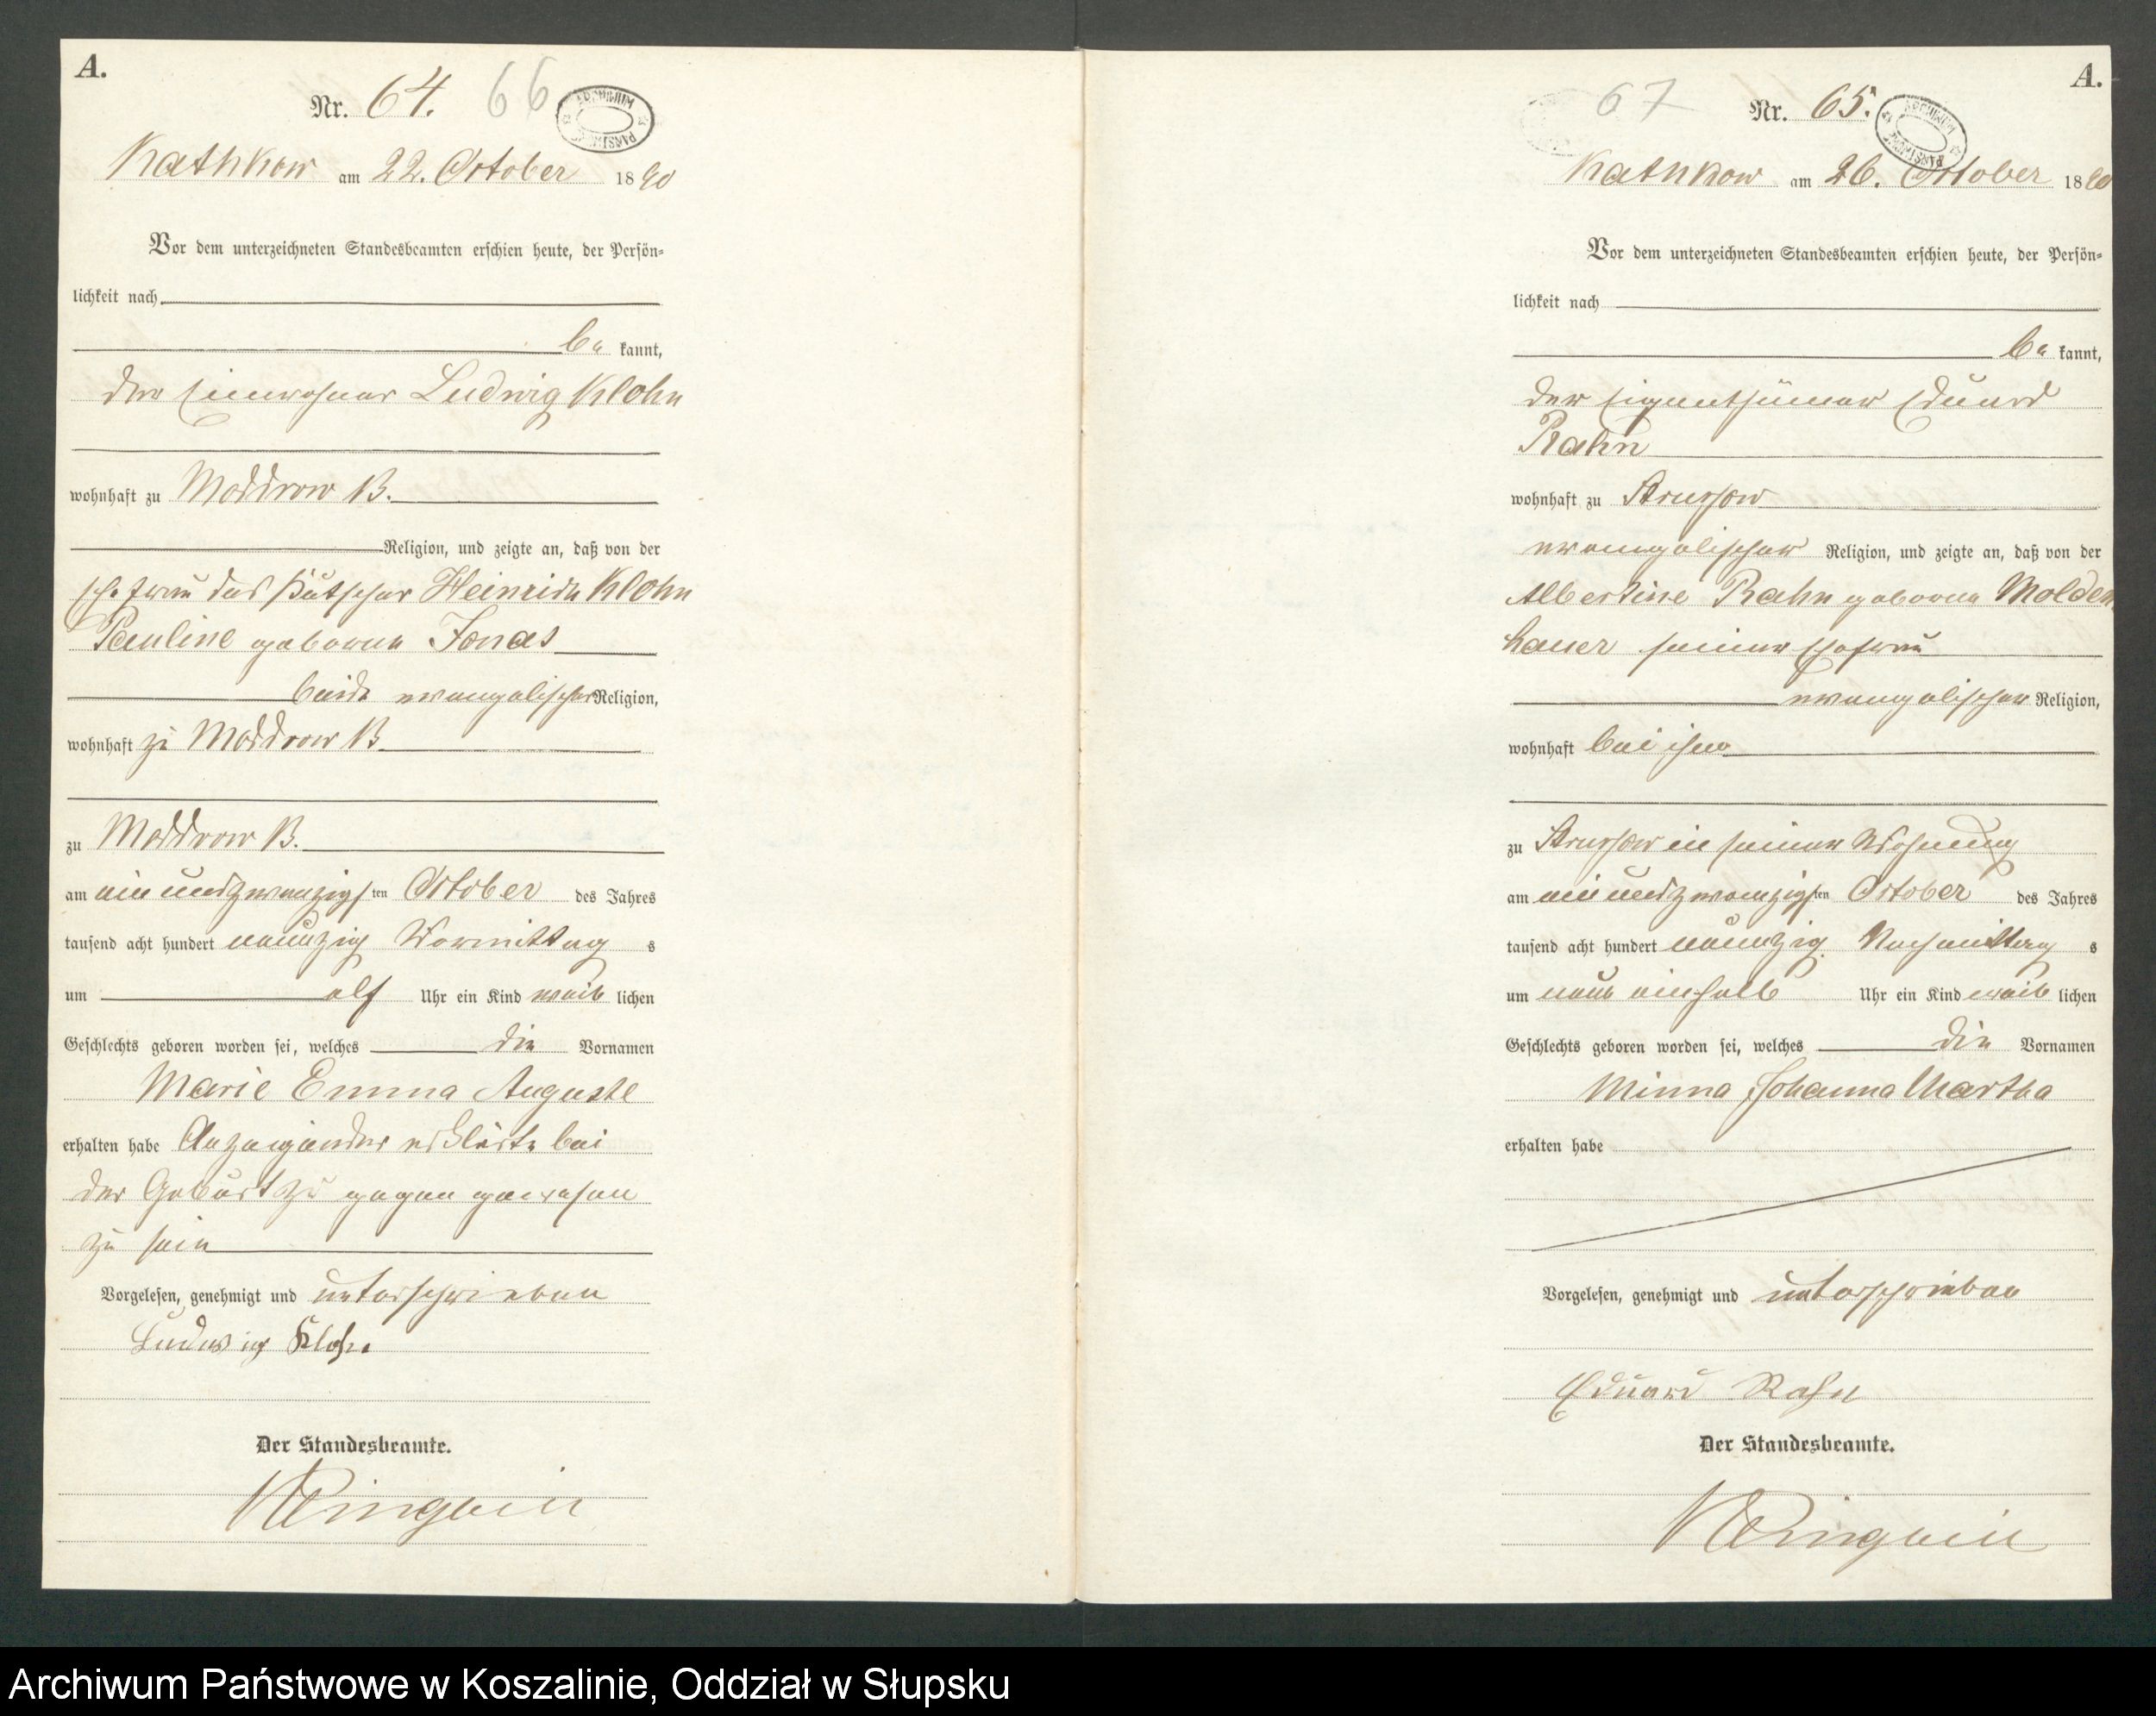 A.
Nr. 64. 66
Kathkow am 22. October 1890
Vor dem unterzeichneten Standesbeamten erschien heute, der Persön-
lichkeit nach
be kannt,
der Einwohner Ludwig Klohn
wohnhaft zu Moddrow B.
Religion, und zeigte an, daß von der
Ehefrau des Kutscher Heinrich Klohn
Pauline geborene Jonas
beide evangelischer Religion,
wohnhaft zu Moddrow B
zu Moddrow B.
am ein und zwanzigsten October des Jahres
tausend acht hundert neunzig Vormittag s
um elf Uhr ein Kind weib lichen
Geschlechts geboren worden sei, welches die Vornamen
Marie Emma Auguste
erhalten habe Anzeigender erklärte bei
der Geburt zu gegen gewesen
zu sein
Vorgelesen, genehmigt und unterschrieben
Ludwig Klohn
Der Standesbeamte.
A.
67 Nr. 65.
Kathkow am 26. October 1890
Vor dem unterzeichneten Standesbeamten erschien heute, der Persön-
lichkeit nach
be kannt,
der Eigenthümer Eduard
Rahn
wohnhaft zu Strussow
evangelischer Religion, und zeigte an, daß von der
Albertine Rahn geborene Molden
hauer seiner Ehefrau
evangelischer Religion,
wohnhaft bei ihm
zu Strussow in seiner Wohnung
am ein und zwanzigsten October des Jahres
tausend acht hundert neunzig Nachmittag s
um neun einhalb Uhr ein Kind weib lichen
Geschlechts geboren worden sei, welches die Vornamen
Minna Johanna Martha
erhalten habe
Vorgelesen, genehmigt und unterschrieben
Eduard Rahn
Der Standesbeamte.
Archiwum Państwowe w Koszalinie, Oddział w Słupsku